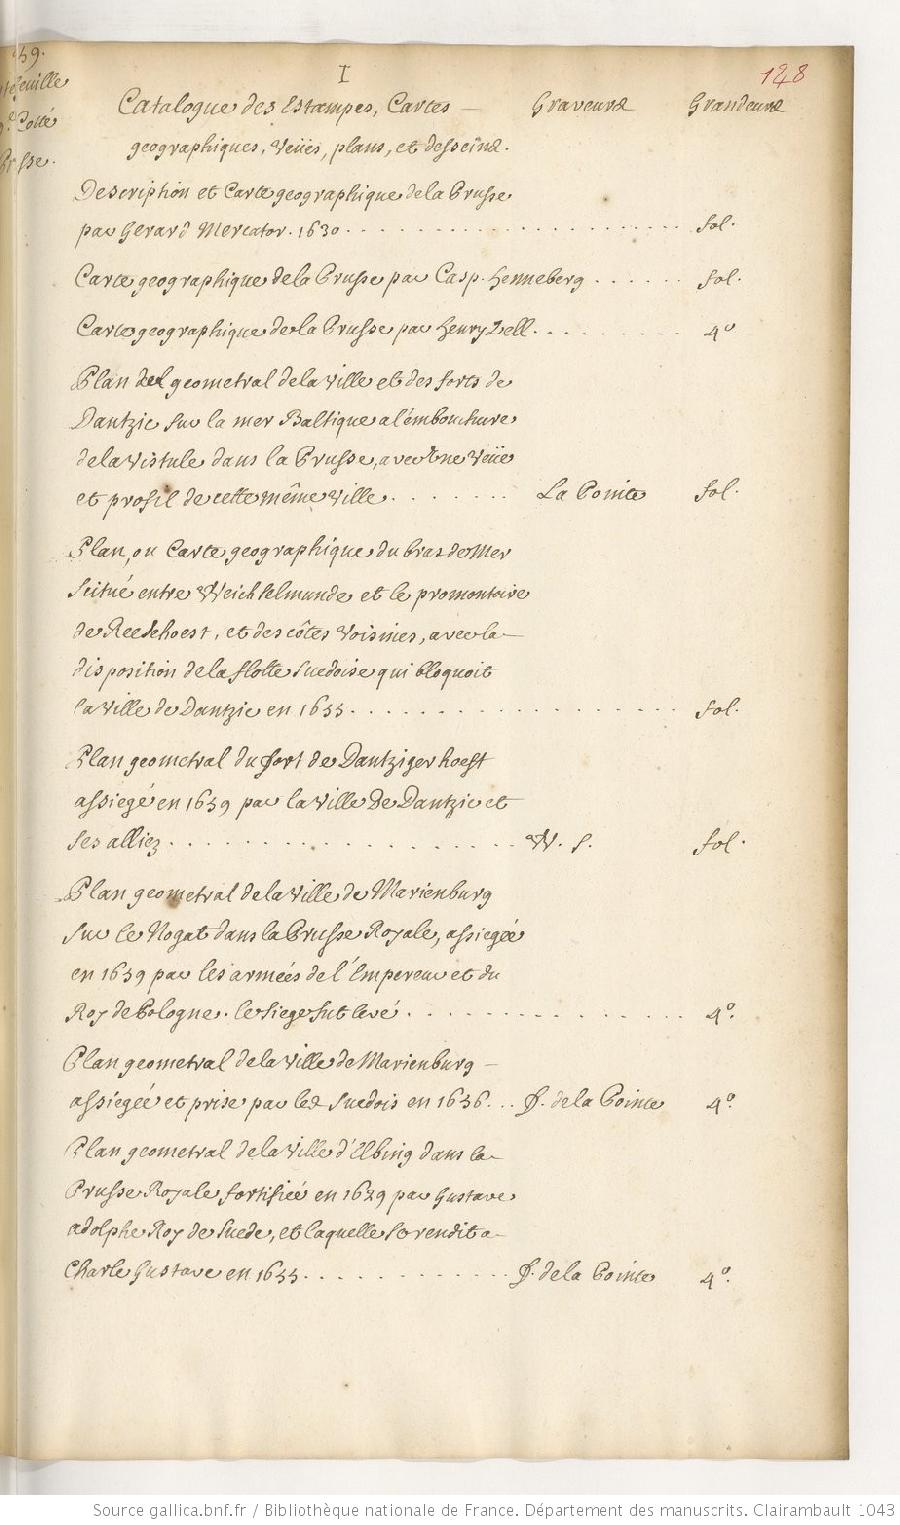 59.
148
I
Catalogue des Estampes, Cartes — Graveurs Grandeurs
geographiques, veües, plans, et desseins.
Description et Carte geographique de la Prusse
par Gerard Mercator. 1630. . . . . . . . . . . . fol.
Carte geographique de la Prusse par Casp. Henneberg . . . . . fol.
Carte geographique de la Prusse par Henry Zell. . . . . . 4º
Plan geometral de la ville et des forts de
Dantzic sur la mer Baltique a l'embouchure
de la Vistule dans la Prusse, avec une veüe
et profil de cette même ville. . . . . . . La Pointe fol.
Plan, ou Carte geographique du bras de Mer
scitué entre Weichselmunde et le promontoire
de Reesehoest, et des côtes voisines, avec la —
disposition de la flotte suedoise qui bloquoit
la ville de Dantzic en 1655. . . . . . . . . . . . fol.
Plan geometral du fort de Dantziger hoeft
assiegé en 1659 par la ville de Dantzic et
ses alliez. . . . . . . . . . . . W. S. fol.
Plan geometral de la ville de Marienburg
sur le Nogat dans la Prusse Royale, assiegée
en 1659 par les armées de l'Empereur et du
Roy de Pologne. le siege fut levé. . . . . . . . . . . 4º.
Plan geometral de la ville de Marienburg —
assiegée et prise par les Suedois en 1656. . . F. de la Pointe 4º.
Plan geometral de la ville d'Elbing dans la —
Prusse Royale fortifiée en 1629 par Gustave
adolphe Roy de Suede, et laquelle se rendit a —
Charle Gustave en 1655. . . . . . . . . . . F. de la Pointe 4º.
Source gallica.bnf.fr / Bibliothèque nationale de France. Département des manuscrits. Clairambault 1043